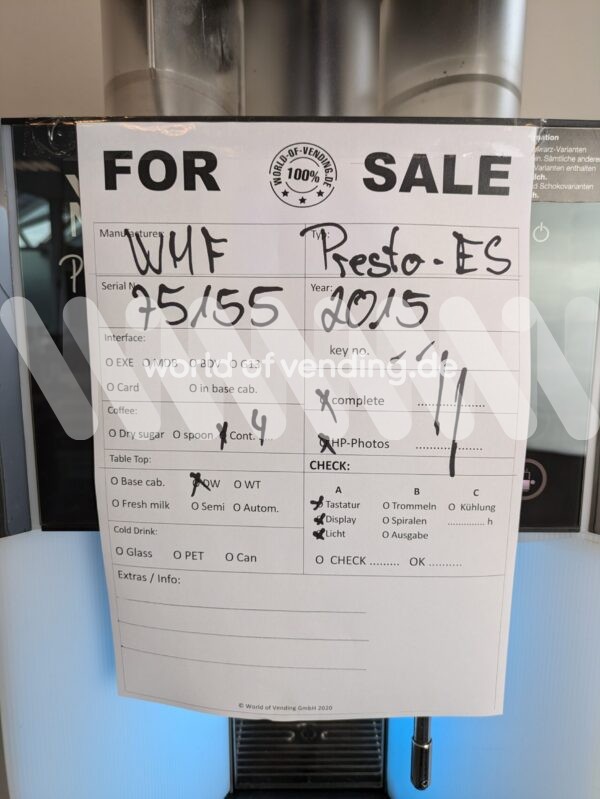 FOR WORLD-OF-VENDING.DE 100% SALE
Manufacturer: WMF Typ: Presto-ES
Serial N 75155 Year: 2015
Interface: key no.
O EXE O MDB O BDV O G13
world of vending.de
O Card O in base cab. complete
Coffee:
O Dry sugar O spoon Cont. 4 HP-Photos
Table Top: CHECK:
O Base cab. DW O WT
A B C
O Fresh milk O Semi O Autom.
Tastatur O Trommeln O Kühlung
Display O Spiralen ............ h
Licht O Ausgabe
Cold Drink:
O Glass O PET O Can
O CHECK ......... OK ..........
Extras / Info:
© World of Vending GmbH 2020
mation
warz-Varianten
n. Sämtliche anderen
Varianten enthalten
lch.
d Schokovarianten